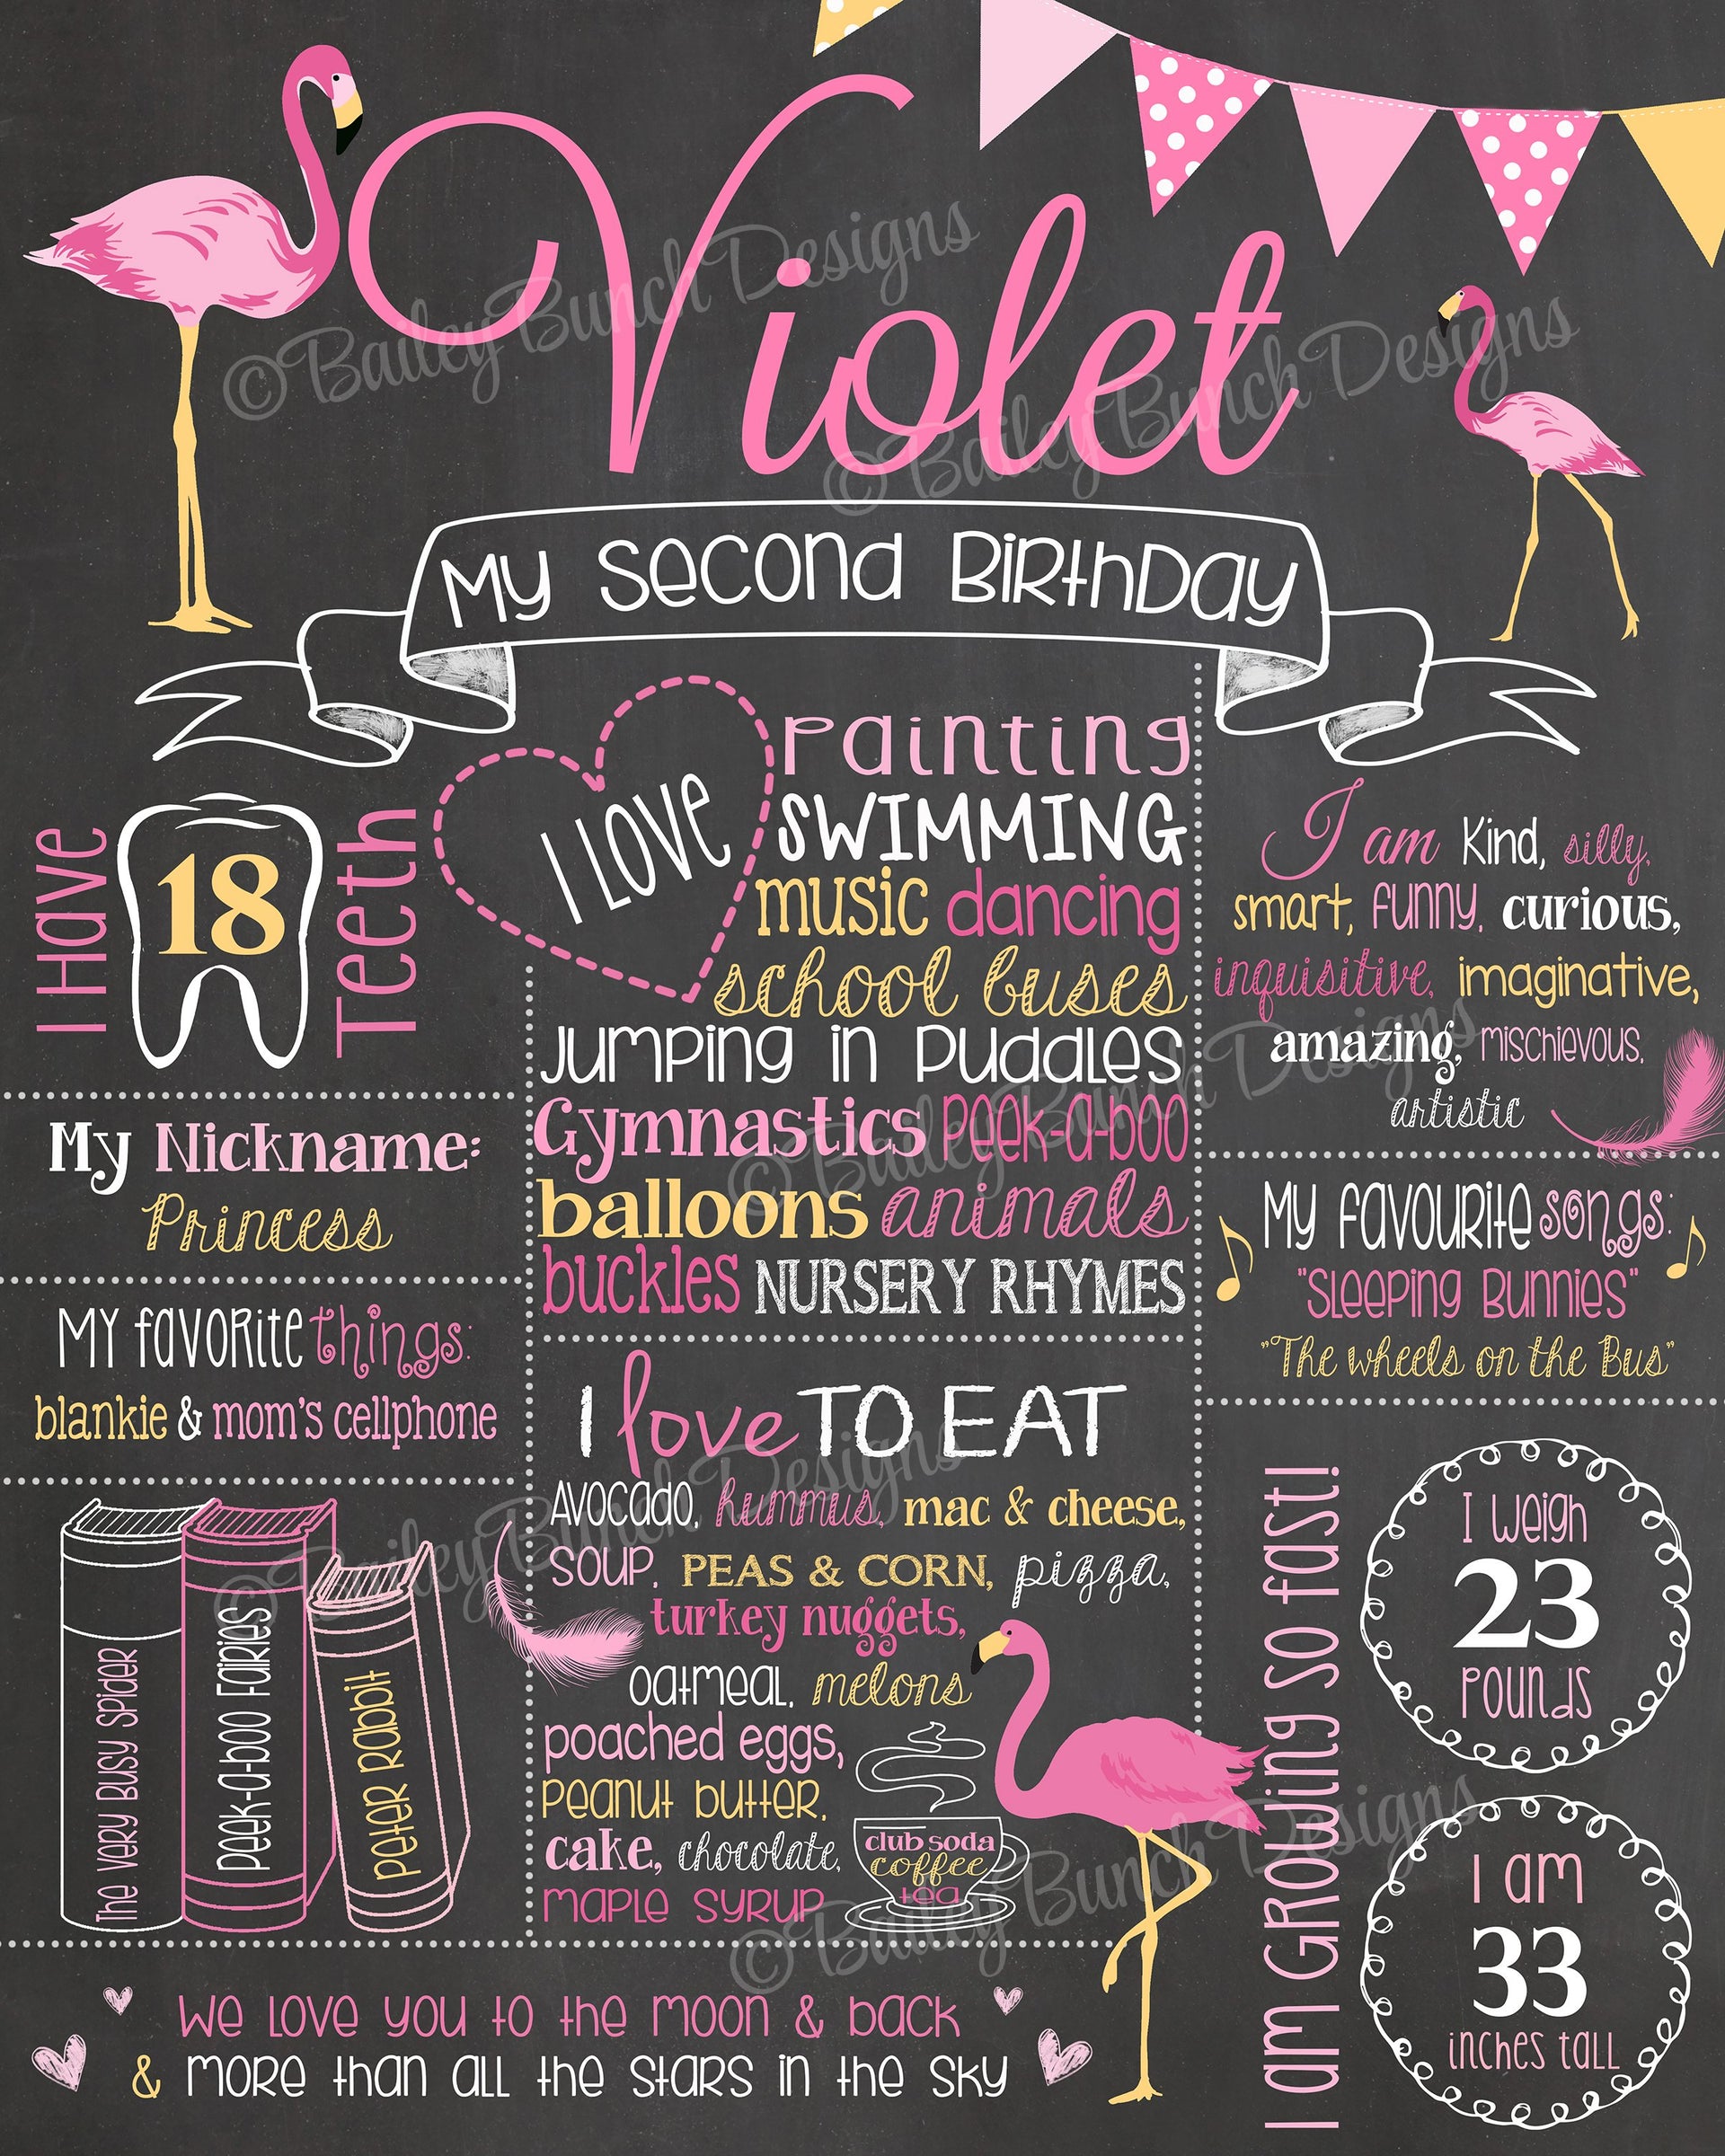 Violet
©BaileyBunchDesigns
©BaileyBunchDesigns
My Second Birthday
I Have
18
Teeth
I LOVE
Painting
SWIMMING
music dancing
school buses
Jumping in Puddles
Gymnastics Peek-a-boo
balloons animals
buckles NURSERY RHYMES
I am Kind, silly,
smart, funny, curious,
inquisitive, imaginative,
amazing, mischievous,
artistic
©BaileyBunchDesigns
My Nickname:
Princess
My favorite things:
blankie & mom's cellphone
The Very Busy Spider
Peek-a-boo Fairies
Peter Rabbit
©BaileyBunchDesigns
I love TO EAT
Avocado, hummus, mac & cheese,
soup, PEAS & CORN, pizza,
turkey nuggets,
oatmeal, melons
poached eggs,
peanut butter,
cake, chocolate,
maple syrup
club soda
coffee
tea
©BaileyBunchDesigns
My favourite songs:
"Sleeping Bunnies"
"The wheels on the Bus"
I am Growing so fast!
I weigh
23
Pounds
I am
33
inches tall
We love you to the moon & back
& more than all the stars in the sky